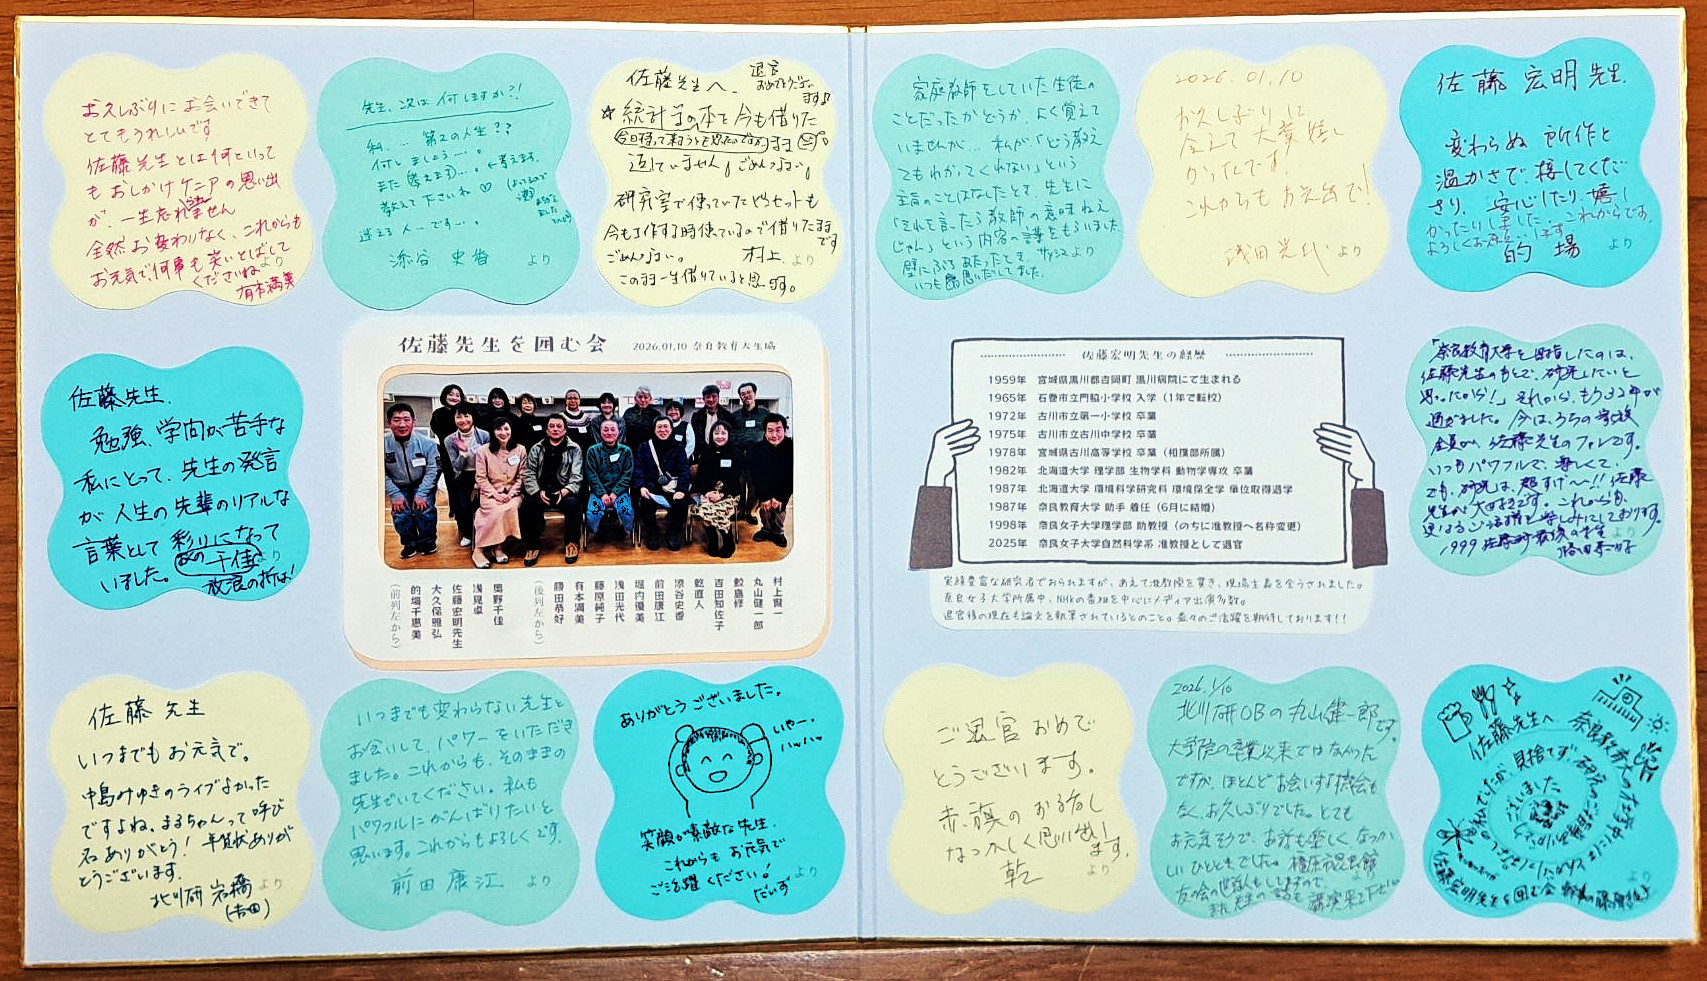 お久しぶりにお会いできて
とてもうれしいです。
佐藤先生とは何といって
もおしかけケニアの思い出
が、一生忘れません
全然お変わりなく、これからも
お元気で何事も笑いとばして
くださいね より
有本満美
先生、次は何しますか?!
私… 第2の人生??
何しましょう…。
また 考えます
教えて下さいね♡
迷える人…です…。
添谷 史香 より
佐藤先生へ、
退官
おめでとうござい
ます♪
☆統計学の本を今も借りた
返していません。ごめんなさい。
研究室で使っていた セットも
今も工作する時使っているので借りたまま
です
ごめんなさい。 村上 より
この2つ一生借りていると思います。
佐藤先生、
勉強、学問が苦手な
私にとって、先生の発言
が人生の先輩のリアルな
言葉として彩りになって
いました。 千佳 より
佐藤先生を囲む会 2026.01.10 奈良教育大生協
村上賢一
丸山健一郎
鮫島修
吉田知佐子
乾直人
添谷史香
前田康江
堀内優美
浅田光代
藤原純子
有本満美
勝田恭好
(後列左から)
奥野千佳
浅見卓
佐藤宏明先生
大久保雅弘
的場千恵美
(前列左から)
佐藤 先生
いつまでもお元気で。
中島みゆきのライブよかった
ですよね、まるちゃんって呼び
名ありがとう! 年賀状ありが
とうございます。
北川研 岩橋 より
(吉田)
いつまでも変わらない先生と
お会いして、パワーをいただき
ました。これからも、そのままの
先生でいてください。私も
パワフルにがんばりたいと
思います。これからもよろしくです。
前田 康江 より
ありがとうございました。
いやー、
ハッハッ
笑顔が素敵な先生、
これからもお元気で
ご活躍ください! より
家庭教師をしていた生徒の
ことだったかどうか、よく覚えて
いませんが… 私が「どう教え
てもわかってくれない」という
主旨のことはなしたとき、先生に
「それを言ったら教師の意味ねえ
じゃん」という内容の言葉をもらいました。
壁にぶちあたったとき、 より
いつも思いだしてました。
2026.01.10
お久しぶりに
会えて大変嬉し
かったです。
これからもお元気で!
浅田光代 より
佐藤 宏明先生
変わらぬ所作と
温かさで、接してくだ
さり、安心したり、嬉し
かったりしました。これからです。
よろしくお願いします。 より
的場
佐藤宏明先生の経歴
1959年 宮城県黒川郡吉岡町 黒川病院にて生まれる
1965年 石巻市立門脇小学校 入学(1年で転校)
1972年 古川市立第一小学校 卒業
1975年 古川市立古川中学校 卒業
1978年 宮城県古川高等学校 卒業(相撲部所属)
1982年 北海道大学 理学部 生物学科 動物学専攻 卒業
1987年 北海道大学 環境科学研究科 環境保全学 単位取得退学
1987年 奈良教育大学 助手 着任(6月に結婚)
1998年 奈良女子大学理学部 助教授(のちに准教授へ名称変更)
2025年 奈良女子大学自然科学系 准教授として退官
実績豊富な研究者でおられますが、あえて准教授を貫き、現場主義を全うされました。
奈良女子大学所属中、NHKの番組を中心にメディア出演多数。
退官後の現在も論文を執筆されているとのこと。益々のご活躍を期待しております!!
「奈良教育大学を目指したのは、
佐藤先生のもとで、研究したいと
思ったから!」それから、もう32年が
過ぎました。今は、うちの家族
全員が、佐藤先生のファンです。
いつもパワフルで、楽しくて、
でも、研究は超すげ〜!!佐藤
先生が大好きです。これからも、
更なるご活躍を楽しみにしております。
1999
ご退官おめで
とうございます。
赤旗のお名なし
なつかしく思い出し
ます。
乾 より
2026.1/10
北川研OBの丸山健一郎です。
大学院の卒業以来ではなかった
ですか、ほとんどお会いする機会も
なく、お久しぶりでした。とても
お元気そうで、お話も楽しくなつか
しいひとときでした。橿原市昆虫館
友の会
佐藤先生へ
奈良教育大の在学中には
ありがとうございました
佐藤宏明先生を囲む会 幹事の藤原純子 より